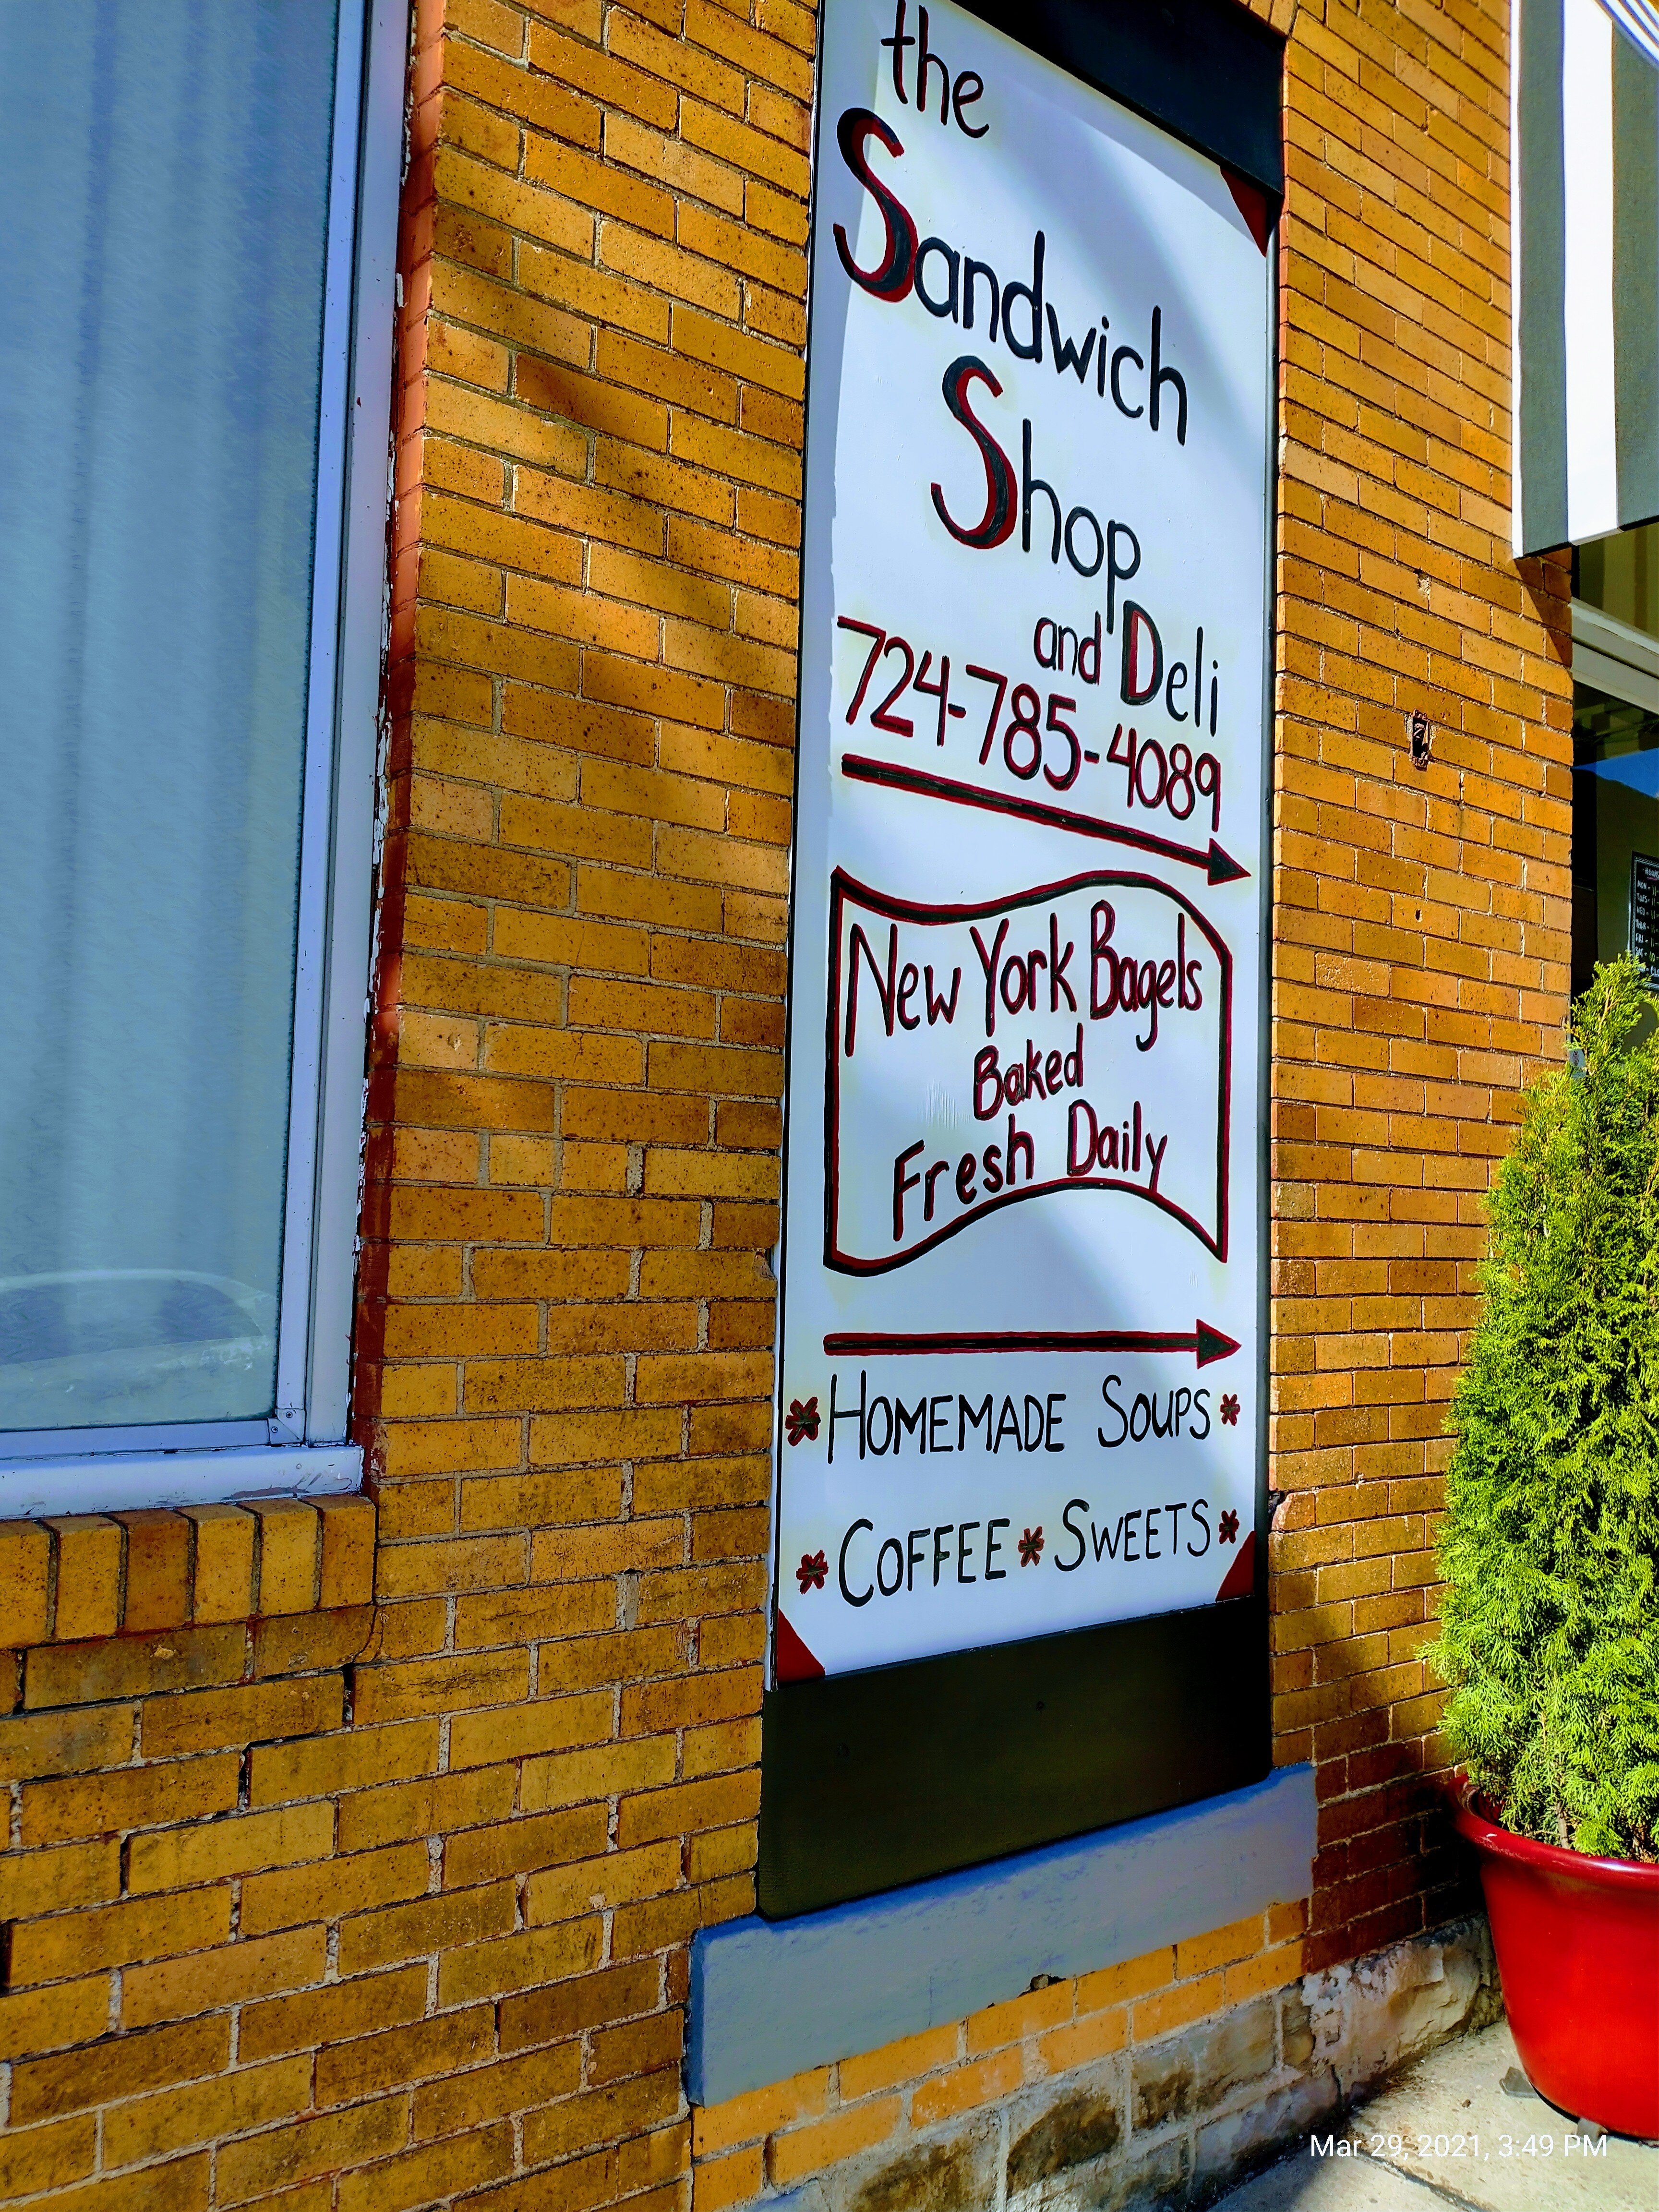 the
Sandwich
Shop
and Deli
724-785-4089
New York Bagels
Baked
Fresh Daily
* HOMEMADE SOUPS *
* COFFEE * SWEETS *
Mar 29, 2021, 3:49 PM